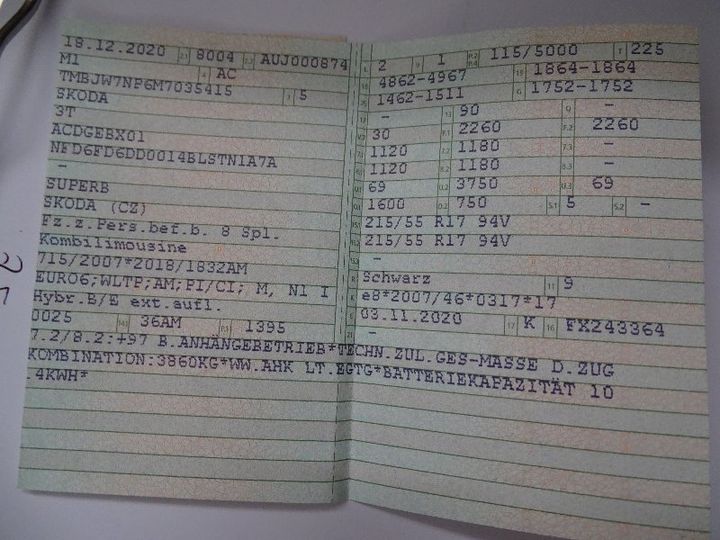 18.12.2020 2.1 8004 2.2 AUJ000874
M1 4 AC
TMBJW7NP6M7035415 3 5
SKODA
3T
ACDGEBX01
NFD6FD6DD0014BLSTN1A7A
-
SUPERB
SKODA (CZ)
Fz.z.Pers.bef.b. 8 Spl.
Kombilimousine
715/2007*2018/1832AM
EURO6;WLTP;AM;PI/CI; M, N1 I
Hybr.B/E ext.aufl.
0025 36AM 1395
L 2 9 1 115/5000 T 225
4862-4967 1864-1864
1462-1511 G 1752-1752
- 90 Q -
30 2260 F.2 2260
1120 1180 -
1120 1180 -
69 3750 U.3 69
1600 750 S.1 5 S.2 -
215/55 R17 94V
215/55 R17 94V
-
R Schwarz 11 9
K e8*2007/46*0317*17
03.11.2020 17 K 16 FX243364
-
7.2/8.2:+97 B.ANHÄNGEBETRIEB*TECHN.ZUL.GES-MASSE D.ZUG
KOMBINATION:3860KG*WW.AHK LT.EGTG*BATTERIEKAPAZITÄT 10
.4KWH*